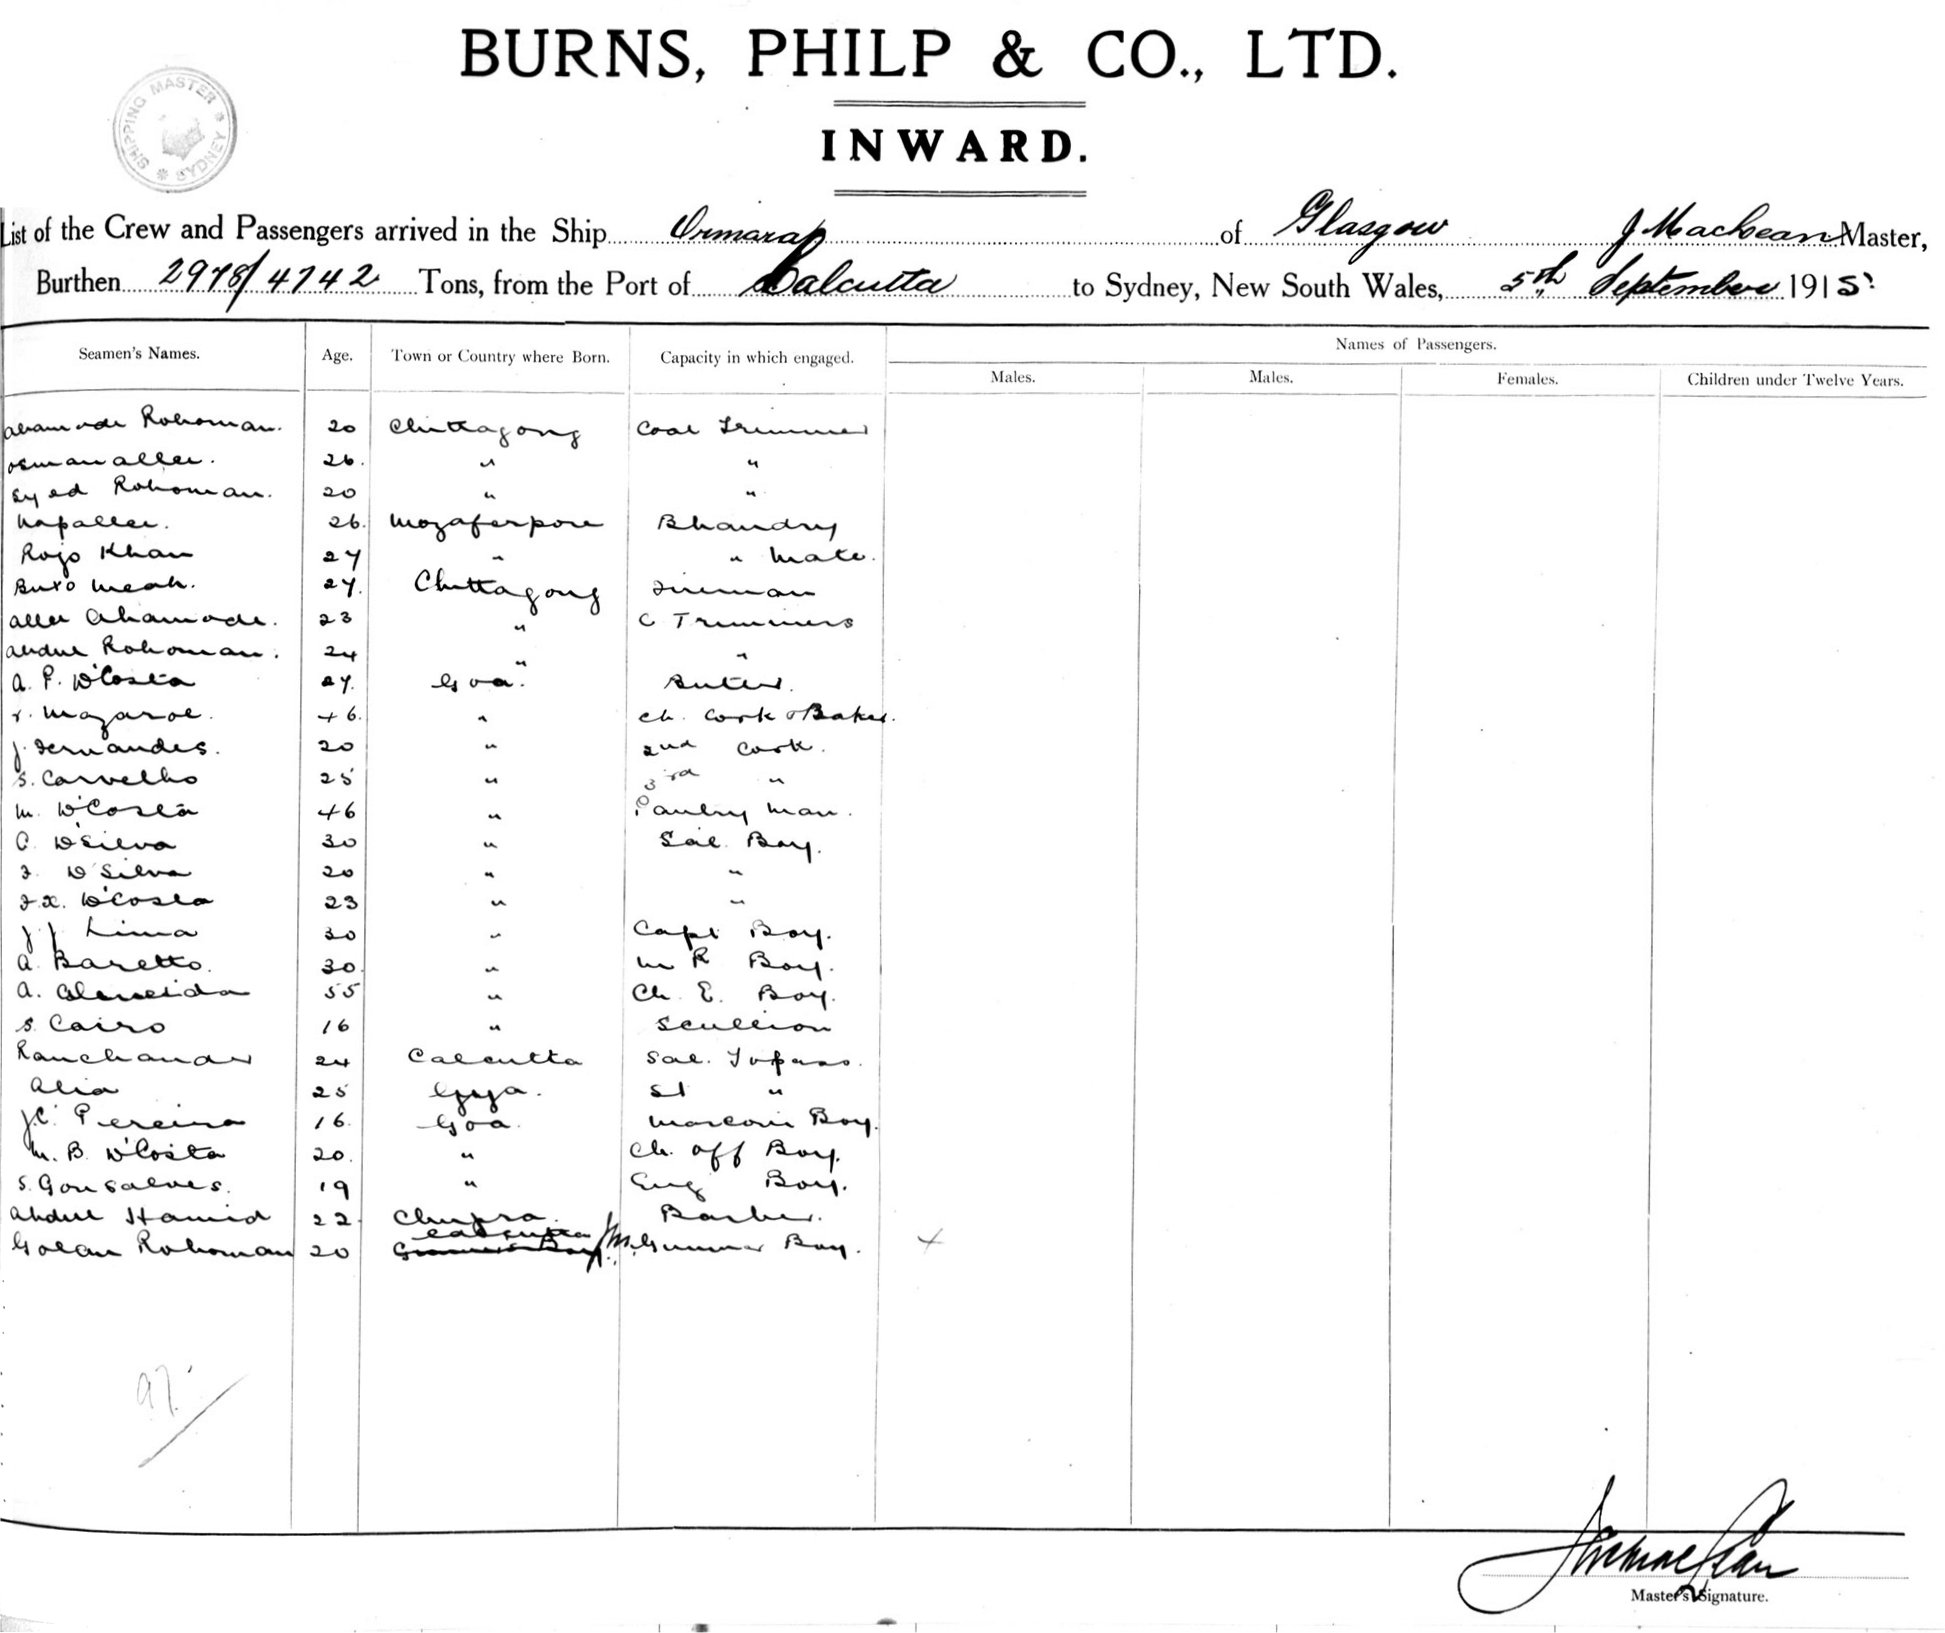 BURNS, PHILP & CO., LTD.
SHIPPING MASTER * SYDNEY *
INWARD.
List of the Crew and Passengers arrived in the Ship Ormara of Glasgow J MacLean Master,
Burthen 2978/4742 Tons, from the Port of Calcutta to Sydney, New South Wales, 5th September 1915
Names of Passengers.
Seamen's Names. Age. Town or Country where Born. Capacity in which engaged. Males. Males. Females. Children under Twelve Years.
Ahamode Rohoman. 20 Chittagong Coal Trimmer
osmanallee. 26. " "
Syed Rohoman. 20 " "
Napallee. 26. Mozaferpore Bhandry
Rojo Khan 27 " " Mate.
Buxo Meah. 27. Chittagong Fireman
Allee Ahamode. 23 " C Trimmers
Abdul Rohoman. 24 " "
A. P. D'Costa 27. Goa. Butler.
Mazaroe. 46. " Ch. Cook & Baker.
J. Fernandes. 20 " 2nd Cook.
S. Carvelho 25 " 3rd "
M. D'Costa 46 " Pantry Man.
C. D'Silva 30 " Sal. Boy.
F. D'Silva 20 " "
F. X. D'Costa 23 " "
J. J Lima 30 " Capt Boy.
A. Baretto. 30. " M R Boy.
A. Almeida 55 " Ch. E. Boy.
S. Cairo 16 " Scullion
Ramchander 24 Calcutta Sal. Topass.
Alia 25 Gya. St "
J.C. Pereira 16. Goa. Marconi Boy.
M. B. D'Costa 20. " Ch. Off Boy.
S. Gonsalves. 19 " Eng Boy.
Abdul Hamid 22. Chupra. Barber.
Golam Rohoman 20 Calcutta Gunner Boy.
97.
Master's Signature.